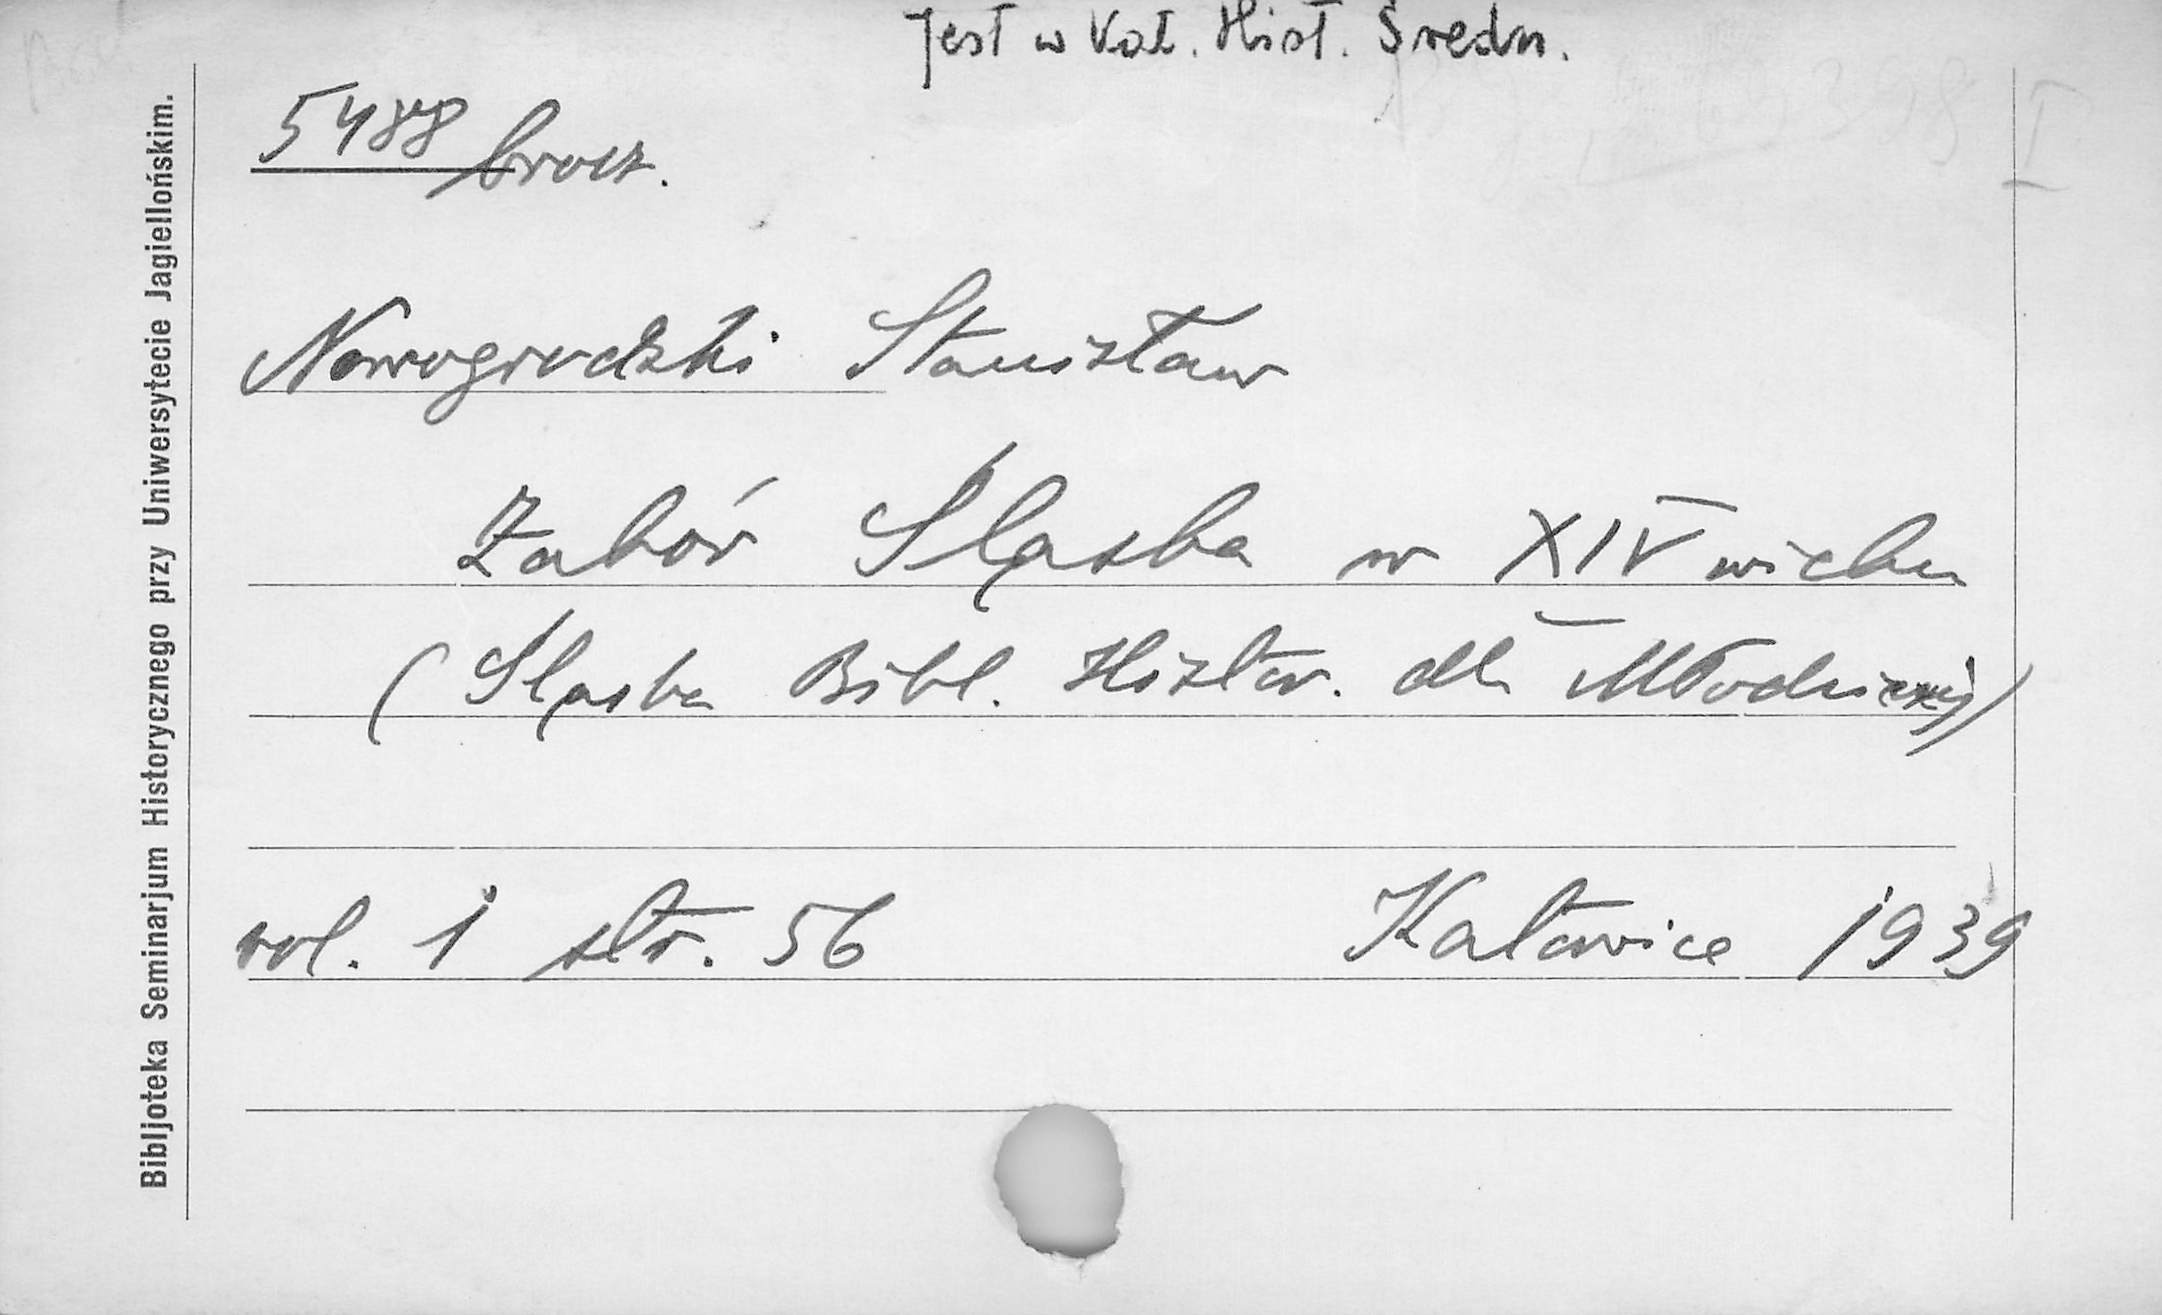 Jest w Kat. Hist. Średn.
5488 brosz.
Nowogrodzki Stanisław
Zabór Śląska w XIV wieku
(Śląska Bibl. Histor. dla Młodzieży)
vol. 1 str. 56 Katowice 1939
Bibljoteka Seminarjum Historycznego przy Uniwersytecie Jagiellońskim.